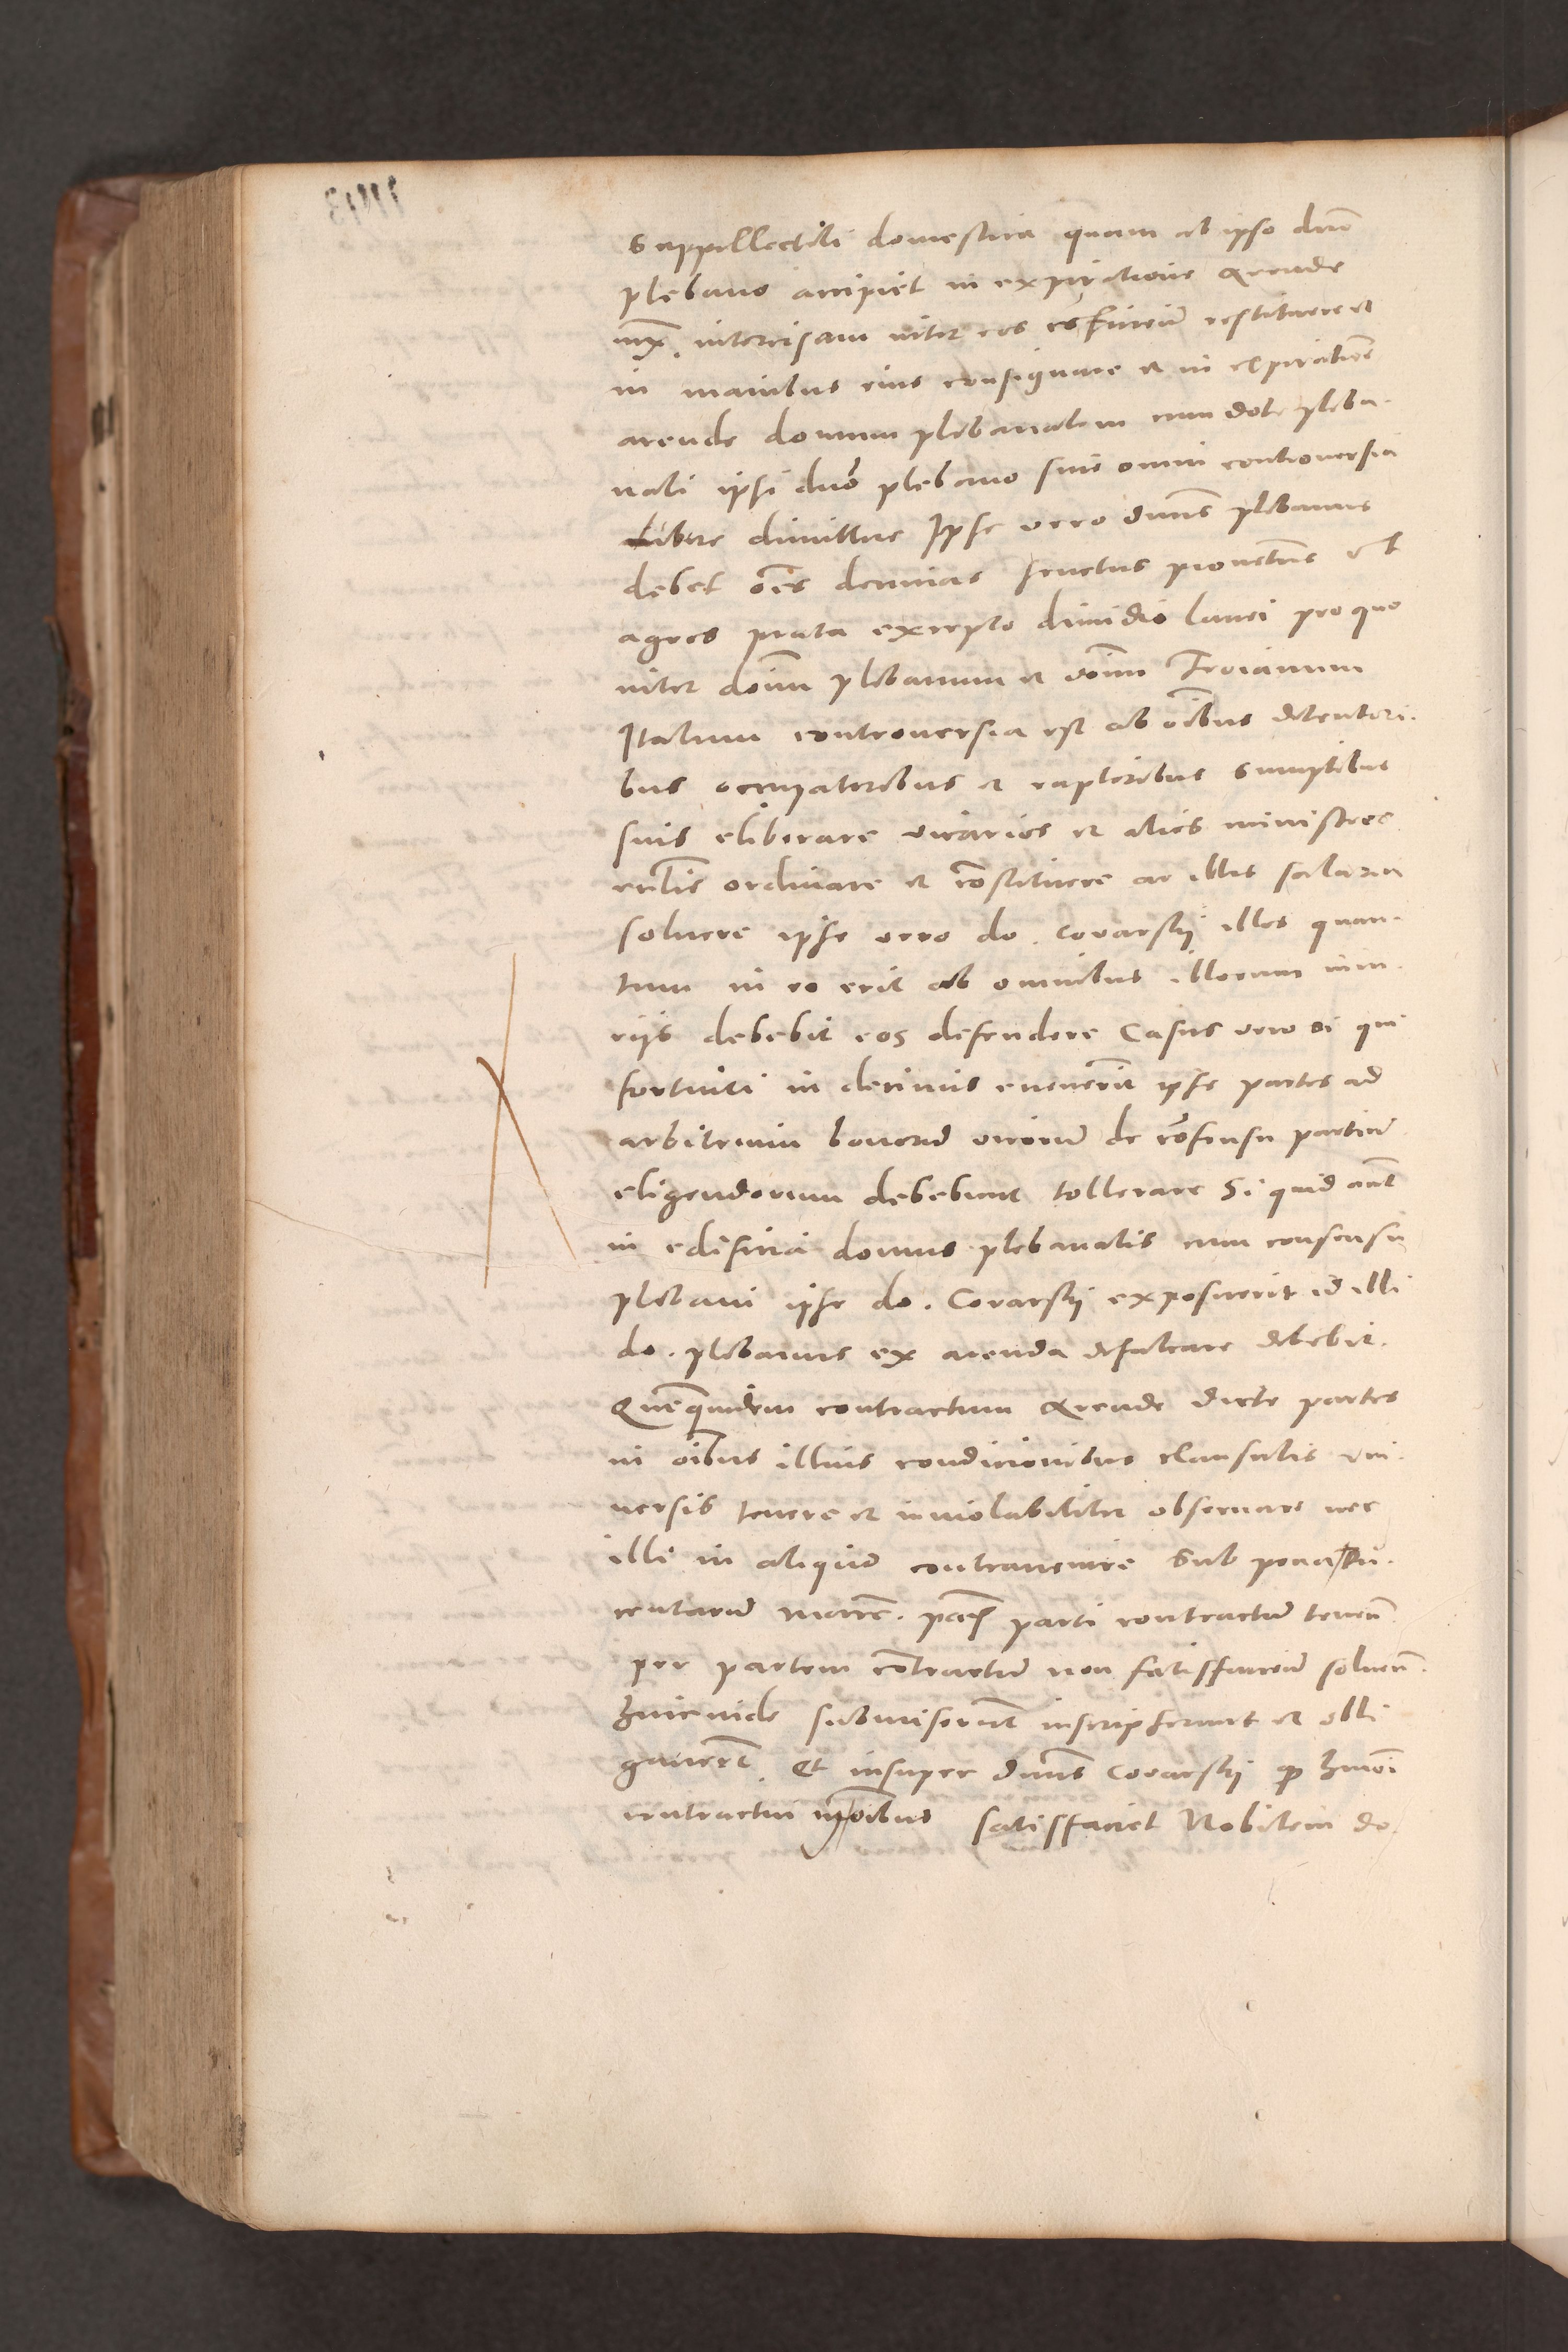 suppellectili domestica quam ab ipso dno
plebano accipiet in expiratione arende
iux. intercisam inter eos restituere et
in manibus eius consignare et in expiratione
arende domum plebanalem cum dote pleba-
nali ipsi dno plebano sine omni controversia
libere dimittere Ipse vero dnus plebanus
debet oes decimas fructus proventus
agros prata excepto dimidio lanei pro quo
inter dnum plebanum et dnum Troianum
Italum controversia est ab oibus detentori-
bus occupatoribus et raptoribus sumptibus
suis eliberare vicarios et alios ministros
ecclie ordinare et constituere ac illis salaria
solvere ipse vero do. Covarskij illos quan-
tum in eo erit ab omnibus illorum iniu-
riis debebit eos defendere Casus vero si qui
fortuiti in decimis evenerint ipse partes ad
arbitrium bonorum virorum de consensu partium
eligendorum debebunt tollerare Si quid aut
in edificia domus plebanalis cum consensu
plebani ipse do. Covarskij exposuerit id illi
do. plebanus ex arenda defalcare debebit.
Quemquidem contractum arende dicte partes
in oibus illius condicionibus clausulis uni-
versis tenere et inviolabiliter observare nec
illi in aliquo contravenire sub pena du-
centarum marc. parti contractum tenen
per partem contractui non satisfacien solven.
huicinde submiserunt inscripserunt et obli
gaverunt. Et insuper dnus Covarskij hmoi
contractui in oibus satisfaciet Nobilem do